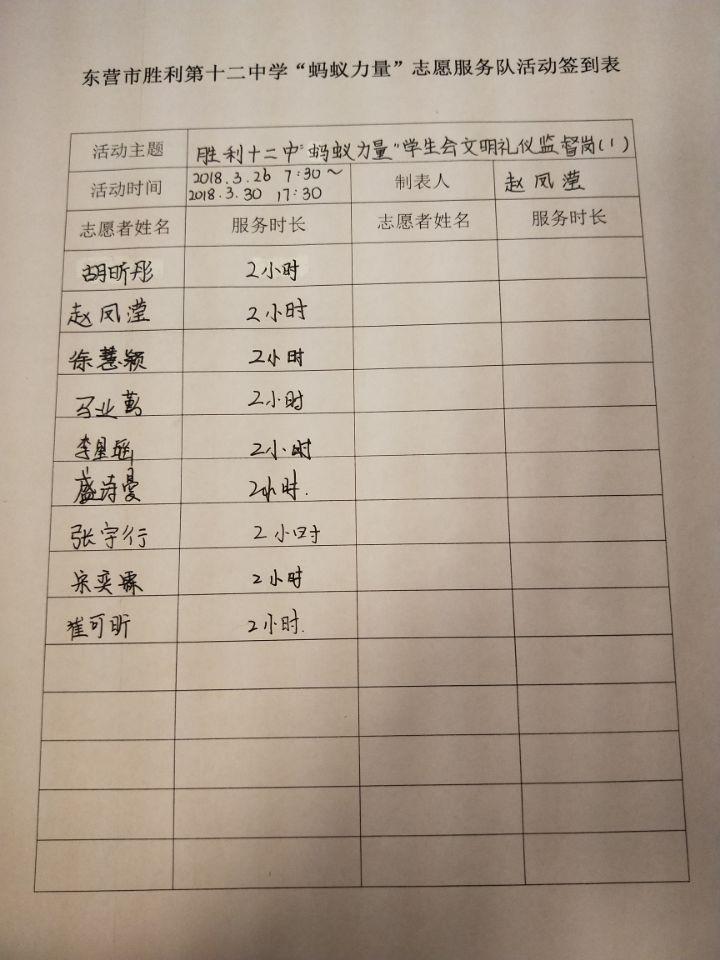 东营市胜利第十二中学“蚂蚁力量”志愿服务队活动签到表
活动主题 胜利十二中“蚂蚁力量”学生会文明礼仪监督岗(1)
活动时间 2018.3.26 7:30～ 制表人 赵凤滢
2018.3.30 17:30
志愿者姓名 服务时长 志愿者姓名 服务时长
胡昕彤 2小时
赵凤滢 2小时
徐慧颖 2小时
马业勤 2小时
李星瑶 2小时
盛诗曼 2小时.
张宇行 2小时
宋奕霖 2小时
崔可昕 2小时.